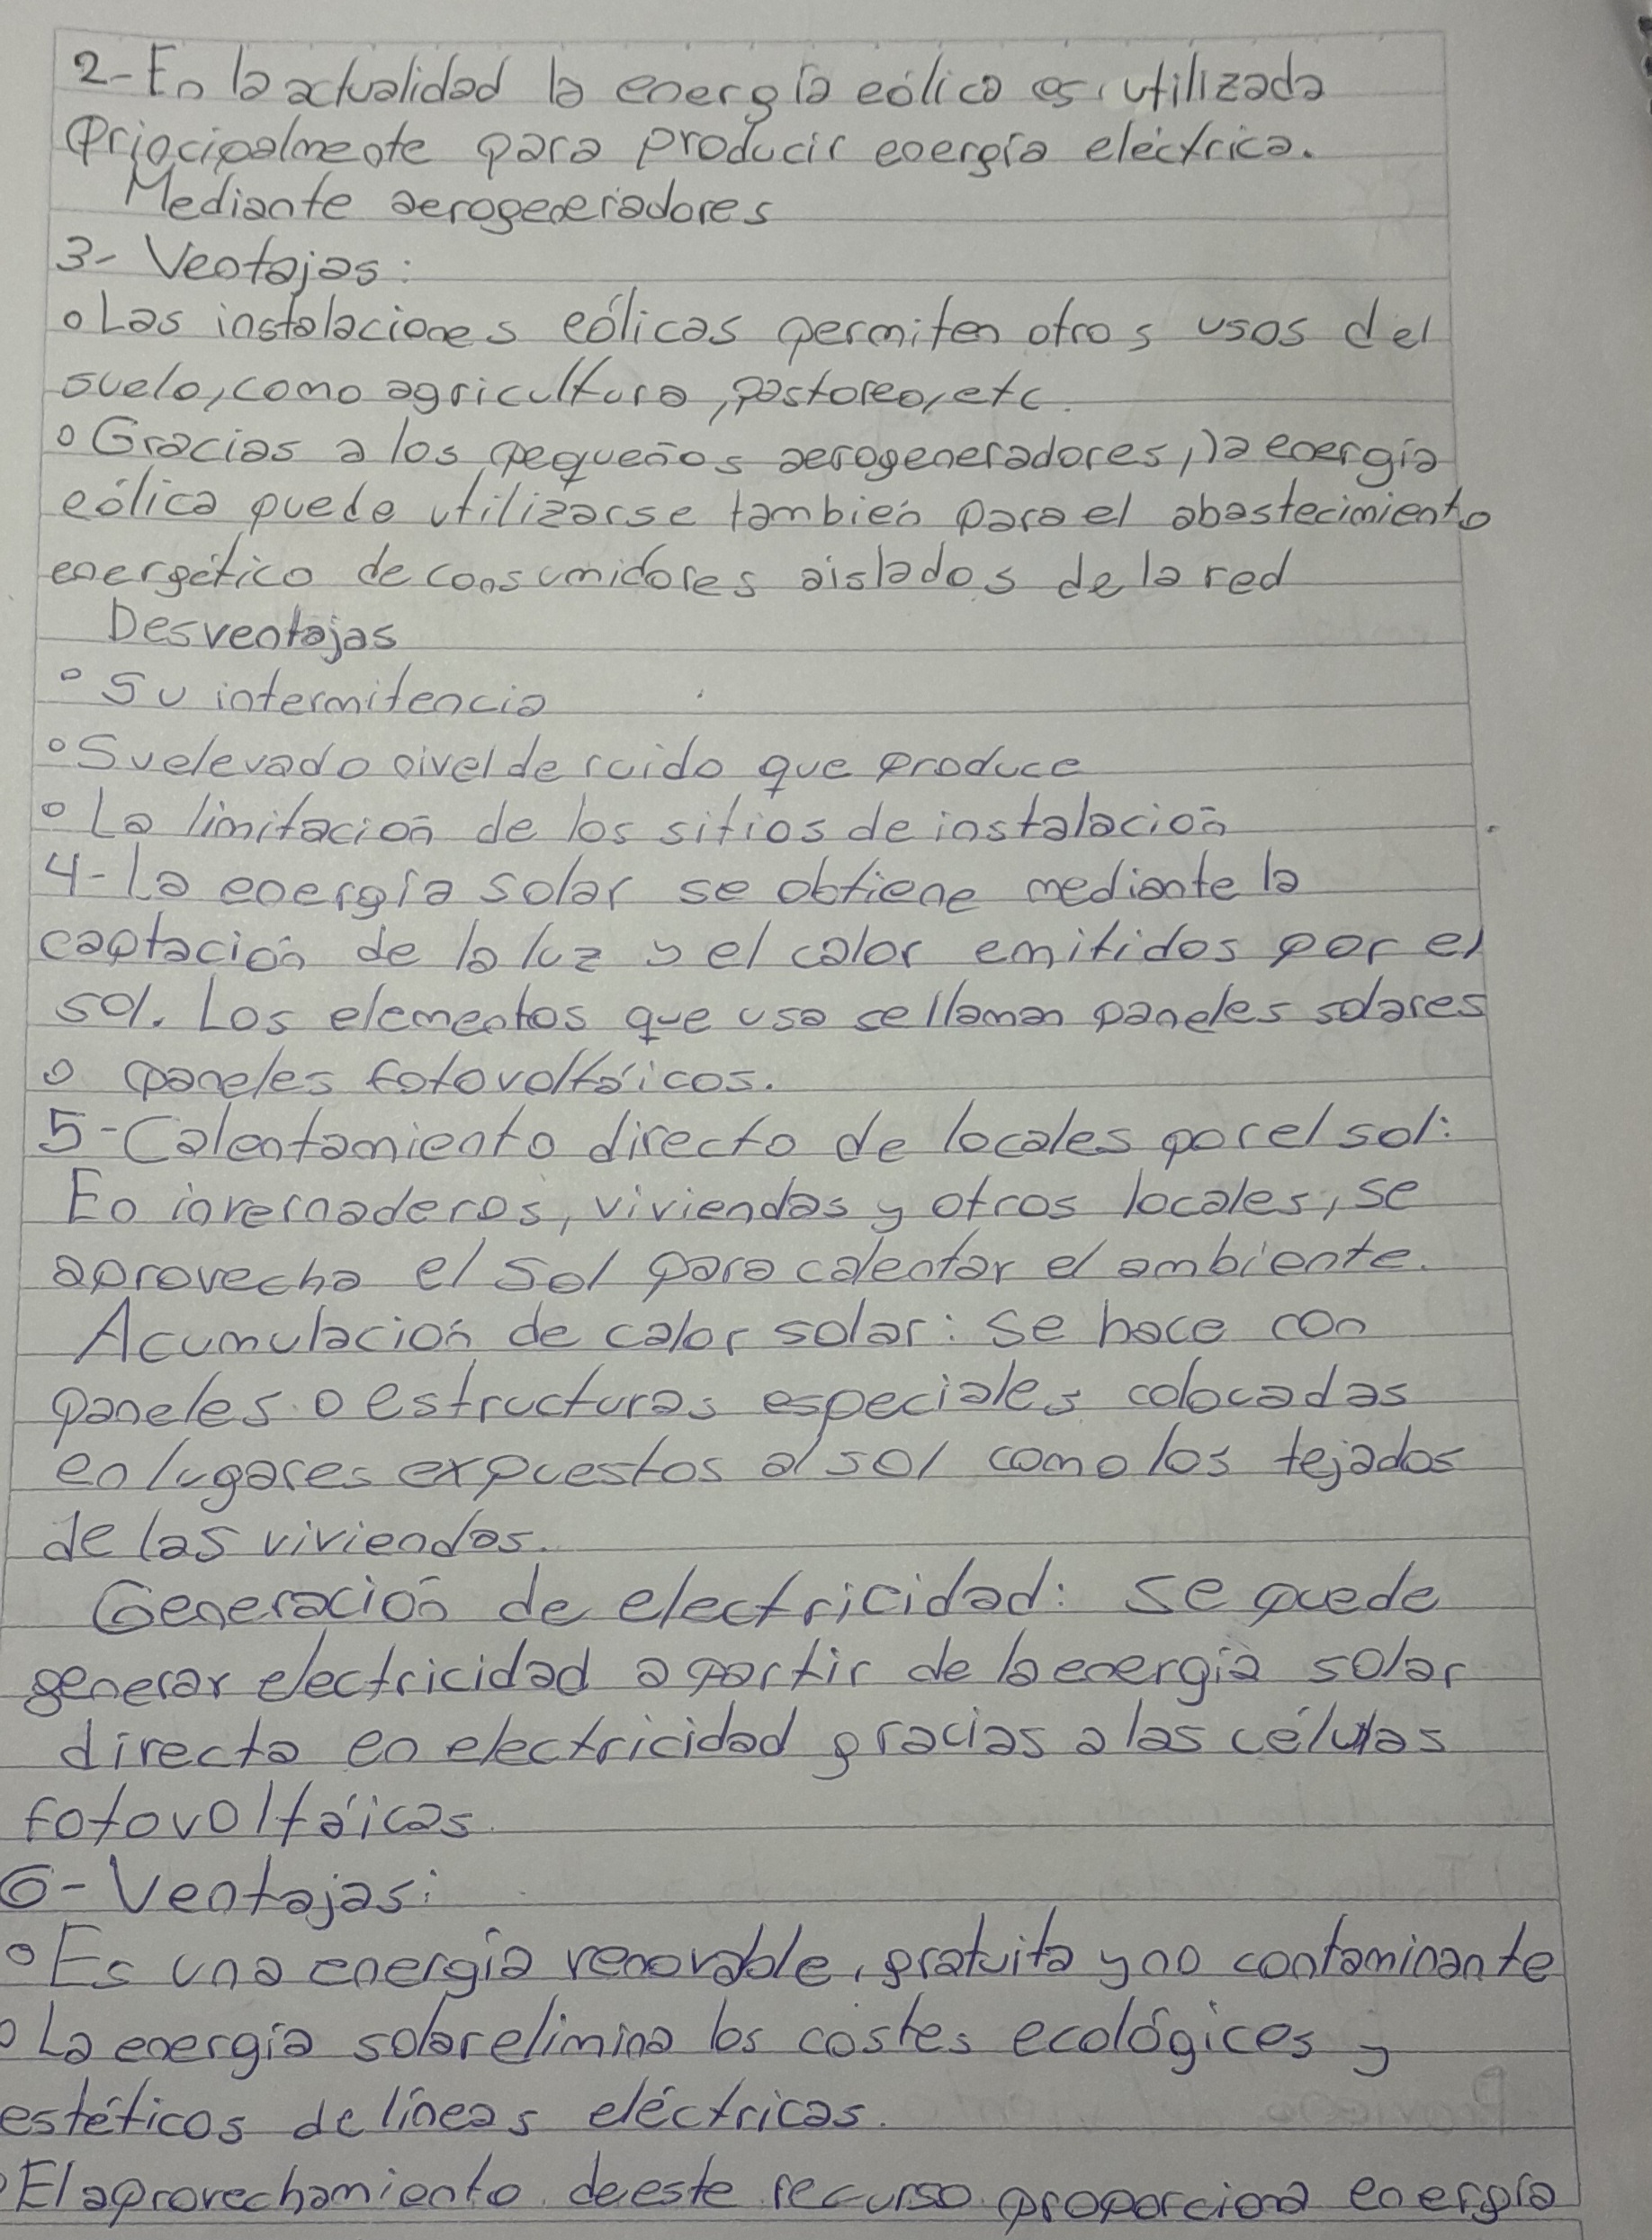 2- En la actualidad la energía eólica es utilizada
principalmente para producir energía eléctrica.
Mediante aerogeneradores
3- Ventajas:
o Las instalaciones eólicas permiten otros usos del
suelo, como agricultura, pastoreo, etc.
o Gracias a los pequeños aerogeneradores, la energía
eólica puede utilizarse también para el abastecimiento
energético de consumidores aislados de la red
Desventajas
o Su intermitencia
o Su elevado nivel de ruido que produce
o La limitación de los sitios de instalación
4- La energía solar se obtiene mediante la
captación de la luz y el calor emitidos por el
sol. Los elementos que usa se llaman paneles solares
o paneles fotovoltáicos.
5- Calentamiento directo de locales por el sol:
En invernaderos, viviendas y otros locales, se
aprovecha el Sol para calentar el ambiente.
Acumulación de calor solar: Se hace con
paneles o estructuras especiales colocadas
en lugares expuestos al sol como los tejados
de las viviendas.
Generación de electricidad: se puede
generar electricidad a partir de la energía solar
directa en electricidad gracias a las células
fotovoltáicas.
6- Ventajas:
o Es una energía renovable, gratuita y no contaminante
o La energía solar elimina los costes ecológicos y
estéticos de líneas eléctricas.
o El aprovechamiento de este recurso proporciona energía